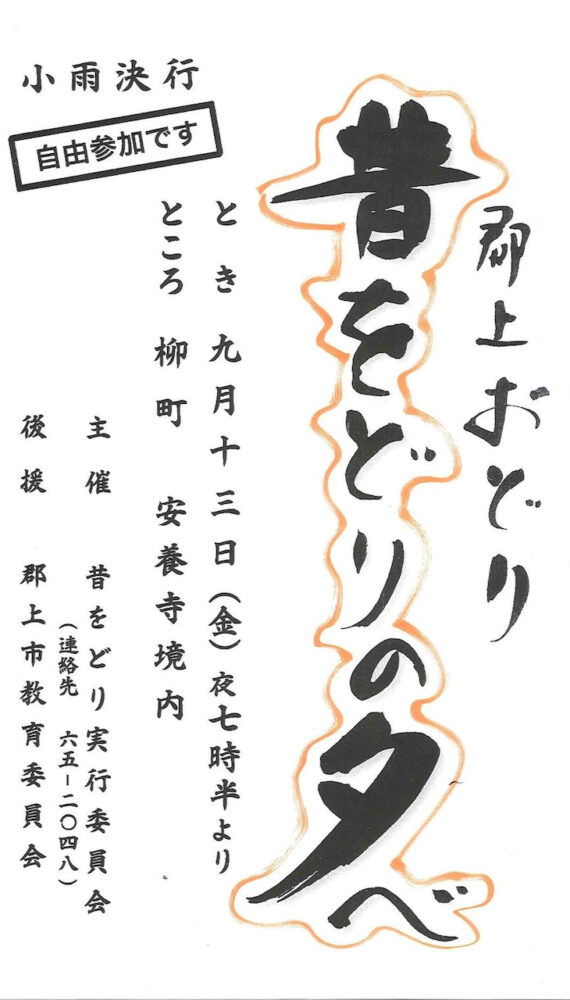 郡上おどり
昔をどりの夕べ
とき 九月十三日(金)夜七時半より
ところ 柳町 安養寺境内
主催 昔をどり実行委員会
(連絡先 六五ー二〇四八)
後援 郡上市教育委員会
小雨決行
自由参加です